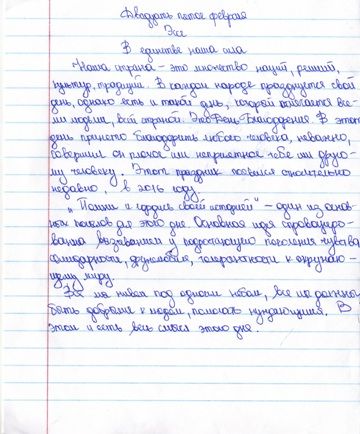 Двадцать пятое февраля
Эссе
В единстве наша сила
Наша страна - это множество наций, религий,
культур, традиций. В каждом народе празднуется свой
день, однако есть и такой день, который отмечается все-
ми людьми, всей страной. Это День Благодарения. В этот
день принято благодарить любого человека, неважно,
совершил он плохое или неприятное тебе или друго-
му человеку. Этот праздник появился относительно
недавно, в 2016 году.
"Помни и гордись своей историей" - один из основ-
ных посылов для этого дня. Основная идея
вызванием у подрастающего поколения чувства
благодарности, дружелюбия, толерантности к окружаю-
щему миру.
мы живем под одним небом, все мы должны
быть добрыми к людям, помогать нуждающимся. В
этом и есть весь смысл этого дня.